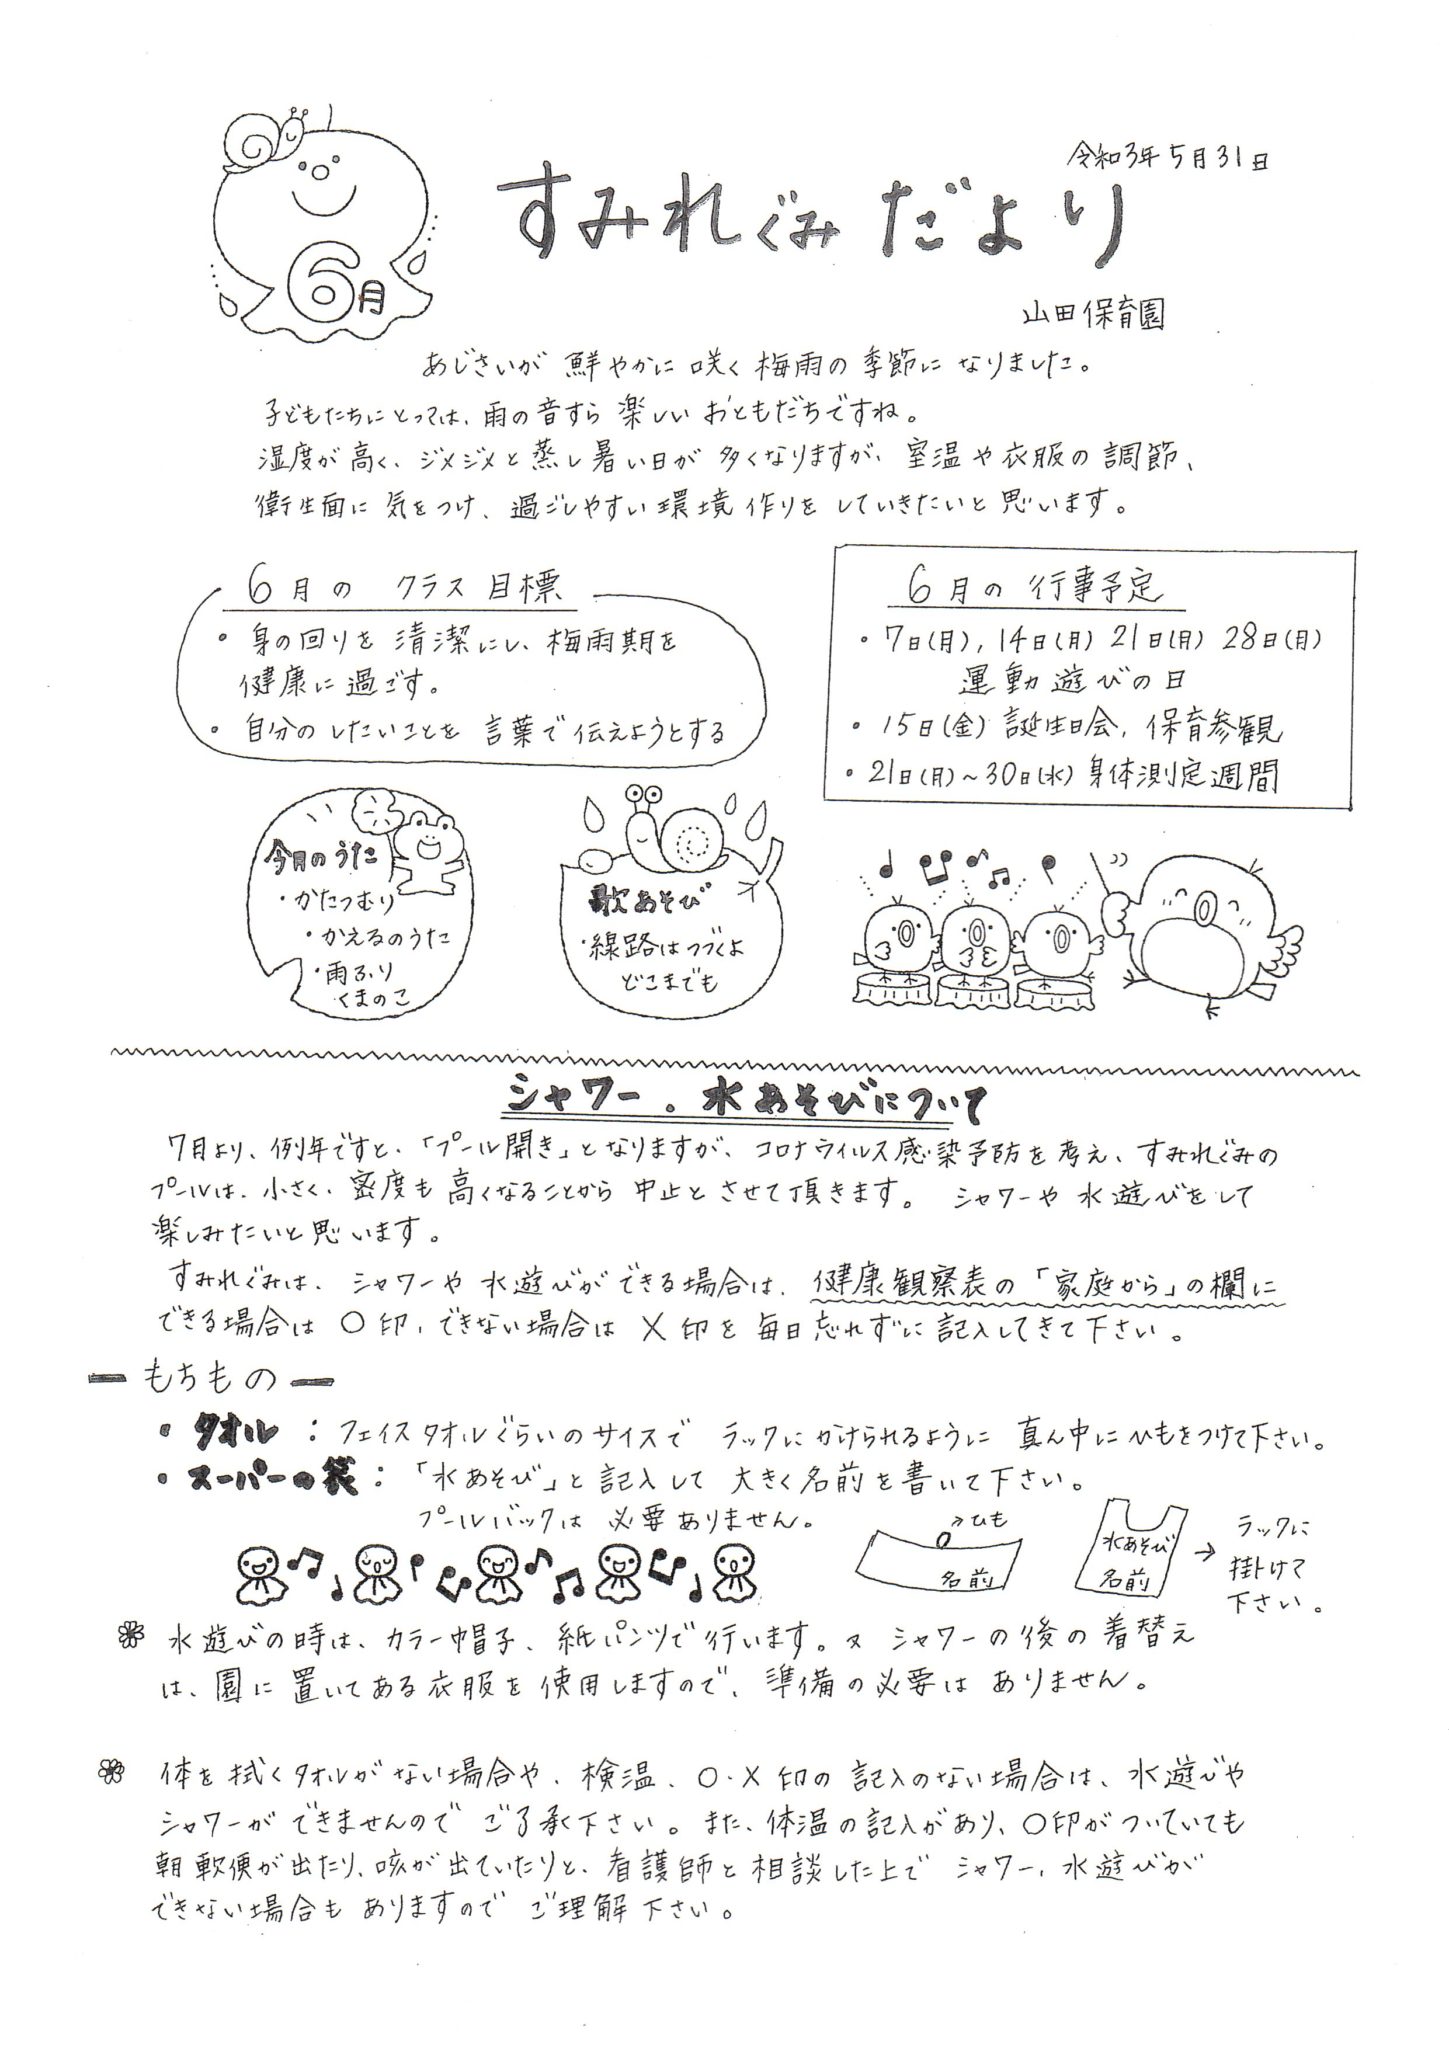 令和3年5月31日
すみれぐみだより
6月
山田保育園
あじさいが鮮やかに咲く梅雨の季節になりました。
子どもたちにとっては、雨の音すら楽しいおともだちですね。
湿度が高く、ジメジメと蒸し暑い日が多くなりますが、室温や衣服の調節、
衛生面に気をつけ、過ごしやすい環境作りをしていきたいと思います。
6月のクラス目標
・身の回りを清潔にし、梅雨期を
健康に過ごす。
・自分のしたいことを言葉で伝えようとする
6月の行事予定
・7日(月),14日(月)21日(月)28日(月)
運動遊びの日
・15日(金)誕生日会,保育参観
・21日(月)~30日(水)身体測定週間
今月のうた
・かたつむり
・かえるのうた
・雨ふり
くまのこ
歌あそび
・線路はつづくよ
どこまでも
シャワー.水あそびについて
7月より、例年ですと、「プール開き」となりますが、コロナウィルス感染予防を考え、すみれぐみの
プールは、小さく、密度も高くなることから中止とさせて頂きます。シャワーや水遊びをして
楽しみたいと思います。
すみれぐみは、シャワーや水遊びができる場合は、健康観察表の「家庭から」の欄に
できる場合は〇印,できない場合は×印を毎日忘れずに記入してきて下さい。
ーもちものー
・タオル：フェイスタオルぐらいのサイズでラックにかけられるように真ん中にひもをつけて下さい。
・スーパーの袋：「水あそび」と記入して大きく名前を書いて下さい。
プールバックは必要ありません。
→ひも
名前
水あそび
名前
→ラックに
掛けて
下さい。
水遊びの時は、カラー帽子、紙パンツで行います。又シャワーの後の着替え
は、園に置いてある衣服を使用しますので、準備の必要はありません。
体を拭くタオルがない場合や、検温、〇・×印の記入のない場合は、水遊びや
シャワーができませんのでご了承下さい。また、体温の記入があり、〇印がついていても
朝軟便が出たり、咳が出ていたりと、看護師と相談した上でシャワー,水遊びが
できない場合もありますのでご理解下さい。